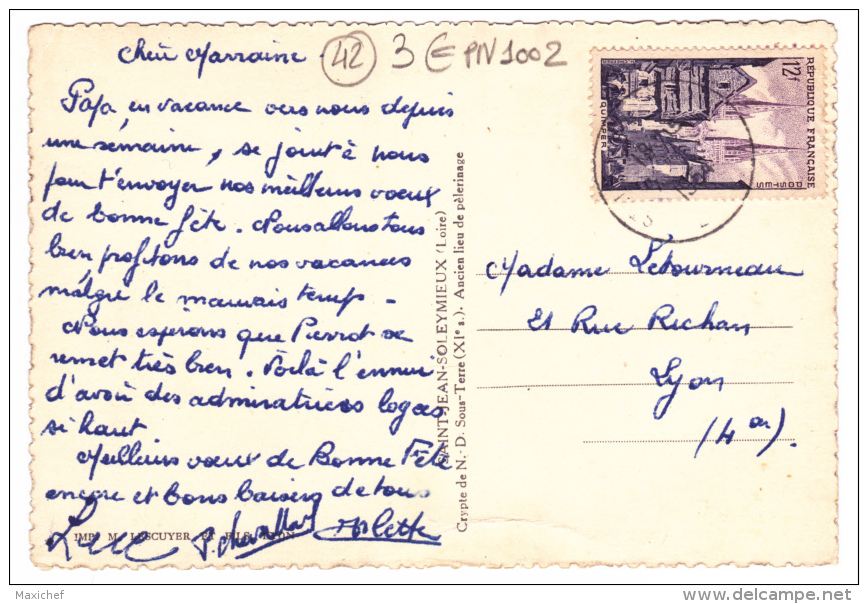 Chère Marraine
42 3 € PN1002
Papa en vacance vers nous depuis
une semaine, se joint à nous
pour t'envoyer nos meilleurs voeux
de bonne fête. Nous allons tous
bien profitons de nos vacances
malgré le mauvais temps.
Nous espérons que Pierrot se
remet très bien. Voilà l'ennui
d'avoir des admiratrices logées
si haut
Meilleurs voeux de Bonne Fête
encore et bons baisers de tous
Luce P. Chevallier Arlette
IMP. M. LESCUYER ET FILS, LYON
SAINT-JEAN-SOLEYMIEUX (Loire)
Crypte de N.-D. Sous-Terre (XIe s.). Ancien lieu de pèlerinage
RÉPUBLIQUE FRANÇAISE
12f
POSTES
QUIMPER
Madame Letourneau
21 Rue Richan
Lyon
(4 ar).
Maxichef
delcampe.net